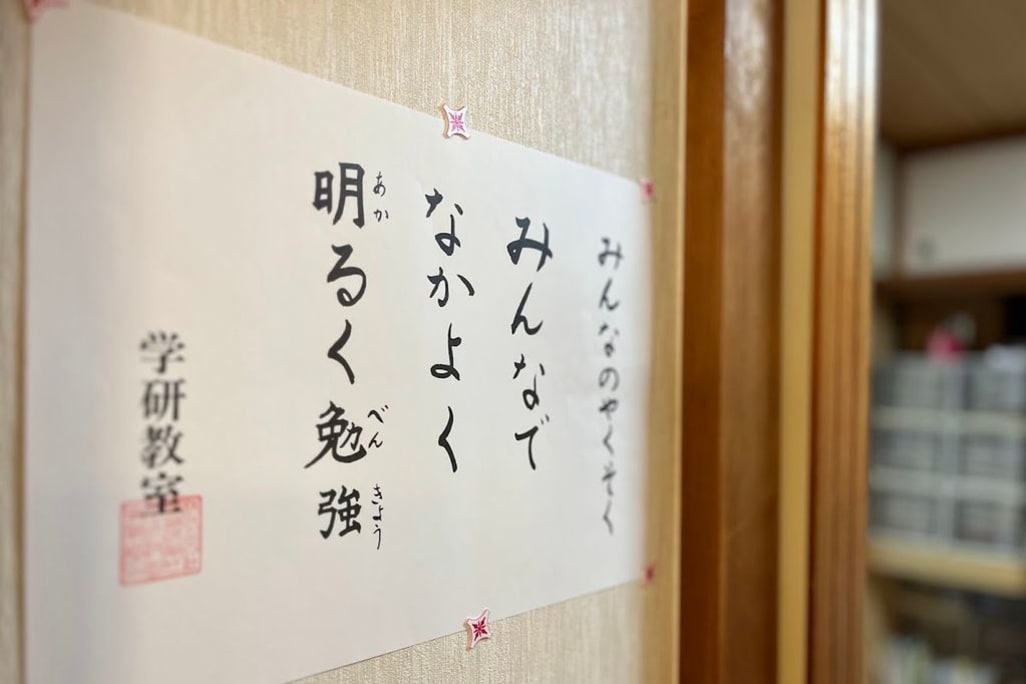 みんなのやくそく
みんなで
なかよく
明るく勉強
あか
べん
きよう
学研教室